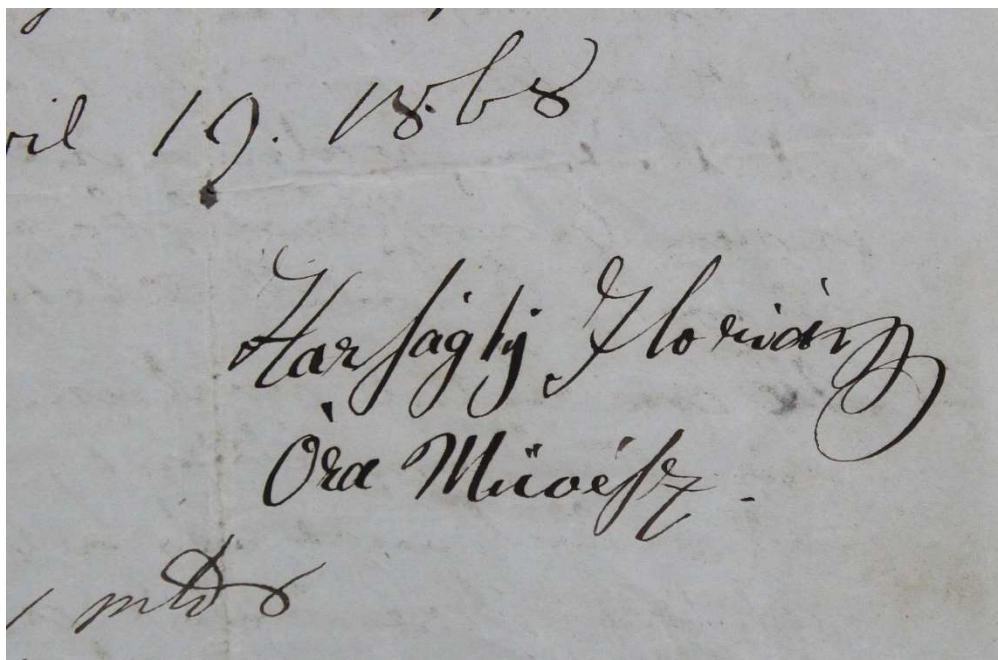 19. 1868
Harsághÿ Florián
Óra Müvész.